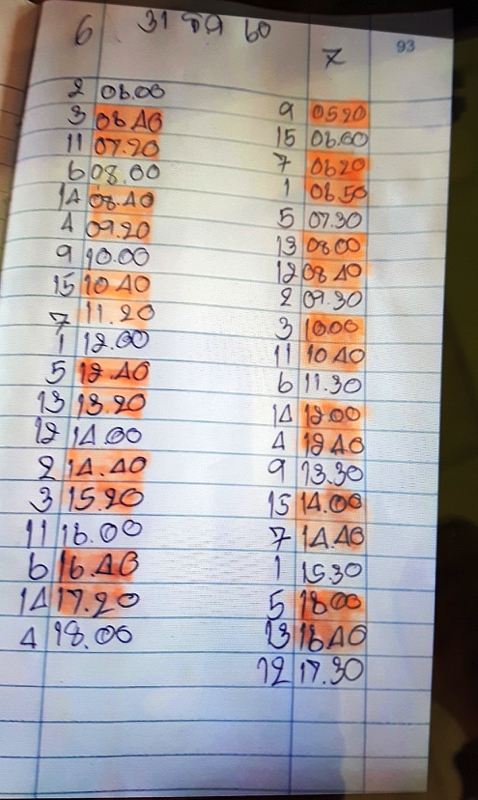 6 31 ตค 60
93
7
2 06.00
3 06.40
11 07.20
6 08.00
14 08.40
4 09.20
9 10.00
15 10.40
7 11.20
1 12.00
5 12.40
13 13.20
12 14.00
2 14.40
3 15.20
11 16.00
6 16.40
14 17.20
4 18.00
9 05.20
15 06.00
7 06.20
1 06.50
5 07.30
13 08.00
12 08.40
2 09.30
3 10.00
11 10.40
6 11.30
14 12.00
4 12.40
9 13.30
15 14.00
7 14.40
1 15.30
5 16.00
13 16.40
12 17.30